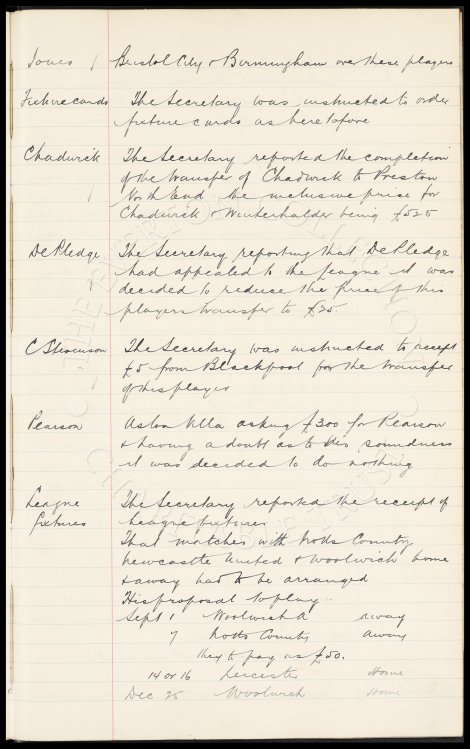 Jones Bristol City & Birmingham over these players
Fixture cards The Secretary was instructed to order
fixture cards as heretofore
Chadwick The Secretary reported the completion
of the transfer of Chadwick to Preston
North End the inclusive price for
Chadwick & Winterhalder being £525
De Pledge The Secretary reporting that De Pledge
had appealed to the League it was
decided to reduce the price of this
players transfer to £25.
C Stevenson The Secretary was instructed to accept
£5 from Blackpool for the transfer
of this player
Pearson Aston Villa asking £300 for Pearson
& having a doubt as to his soundness
it was decided to do nothing
League The Secretary reported the receipt of
fixtures League fixtures
That matches with Notts County
Newcastle United & Woolwich home
& away had to be arranged
His proposal to play
Sept 1 Woolwich A away
7 Notts County away
they to pay us £50.
14 or 16 Leicester Home
Dec 25 Woolwich Home
THE EVERTON COLLECTION